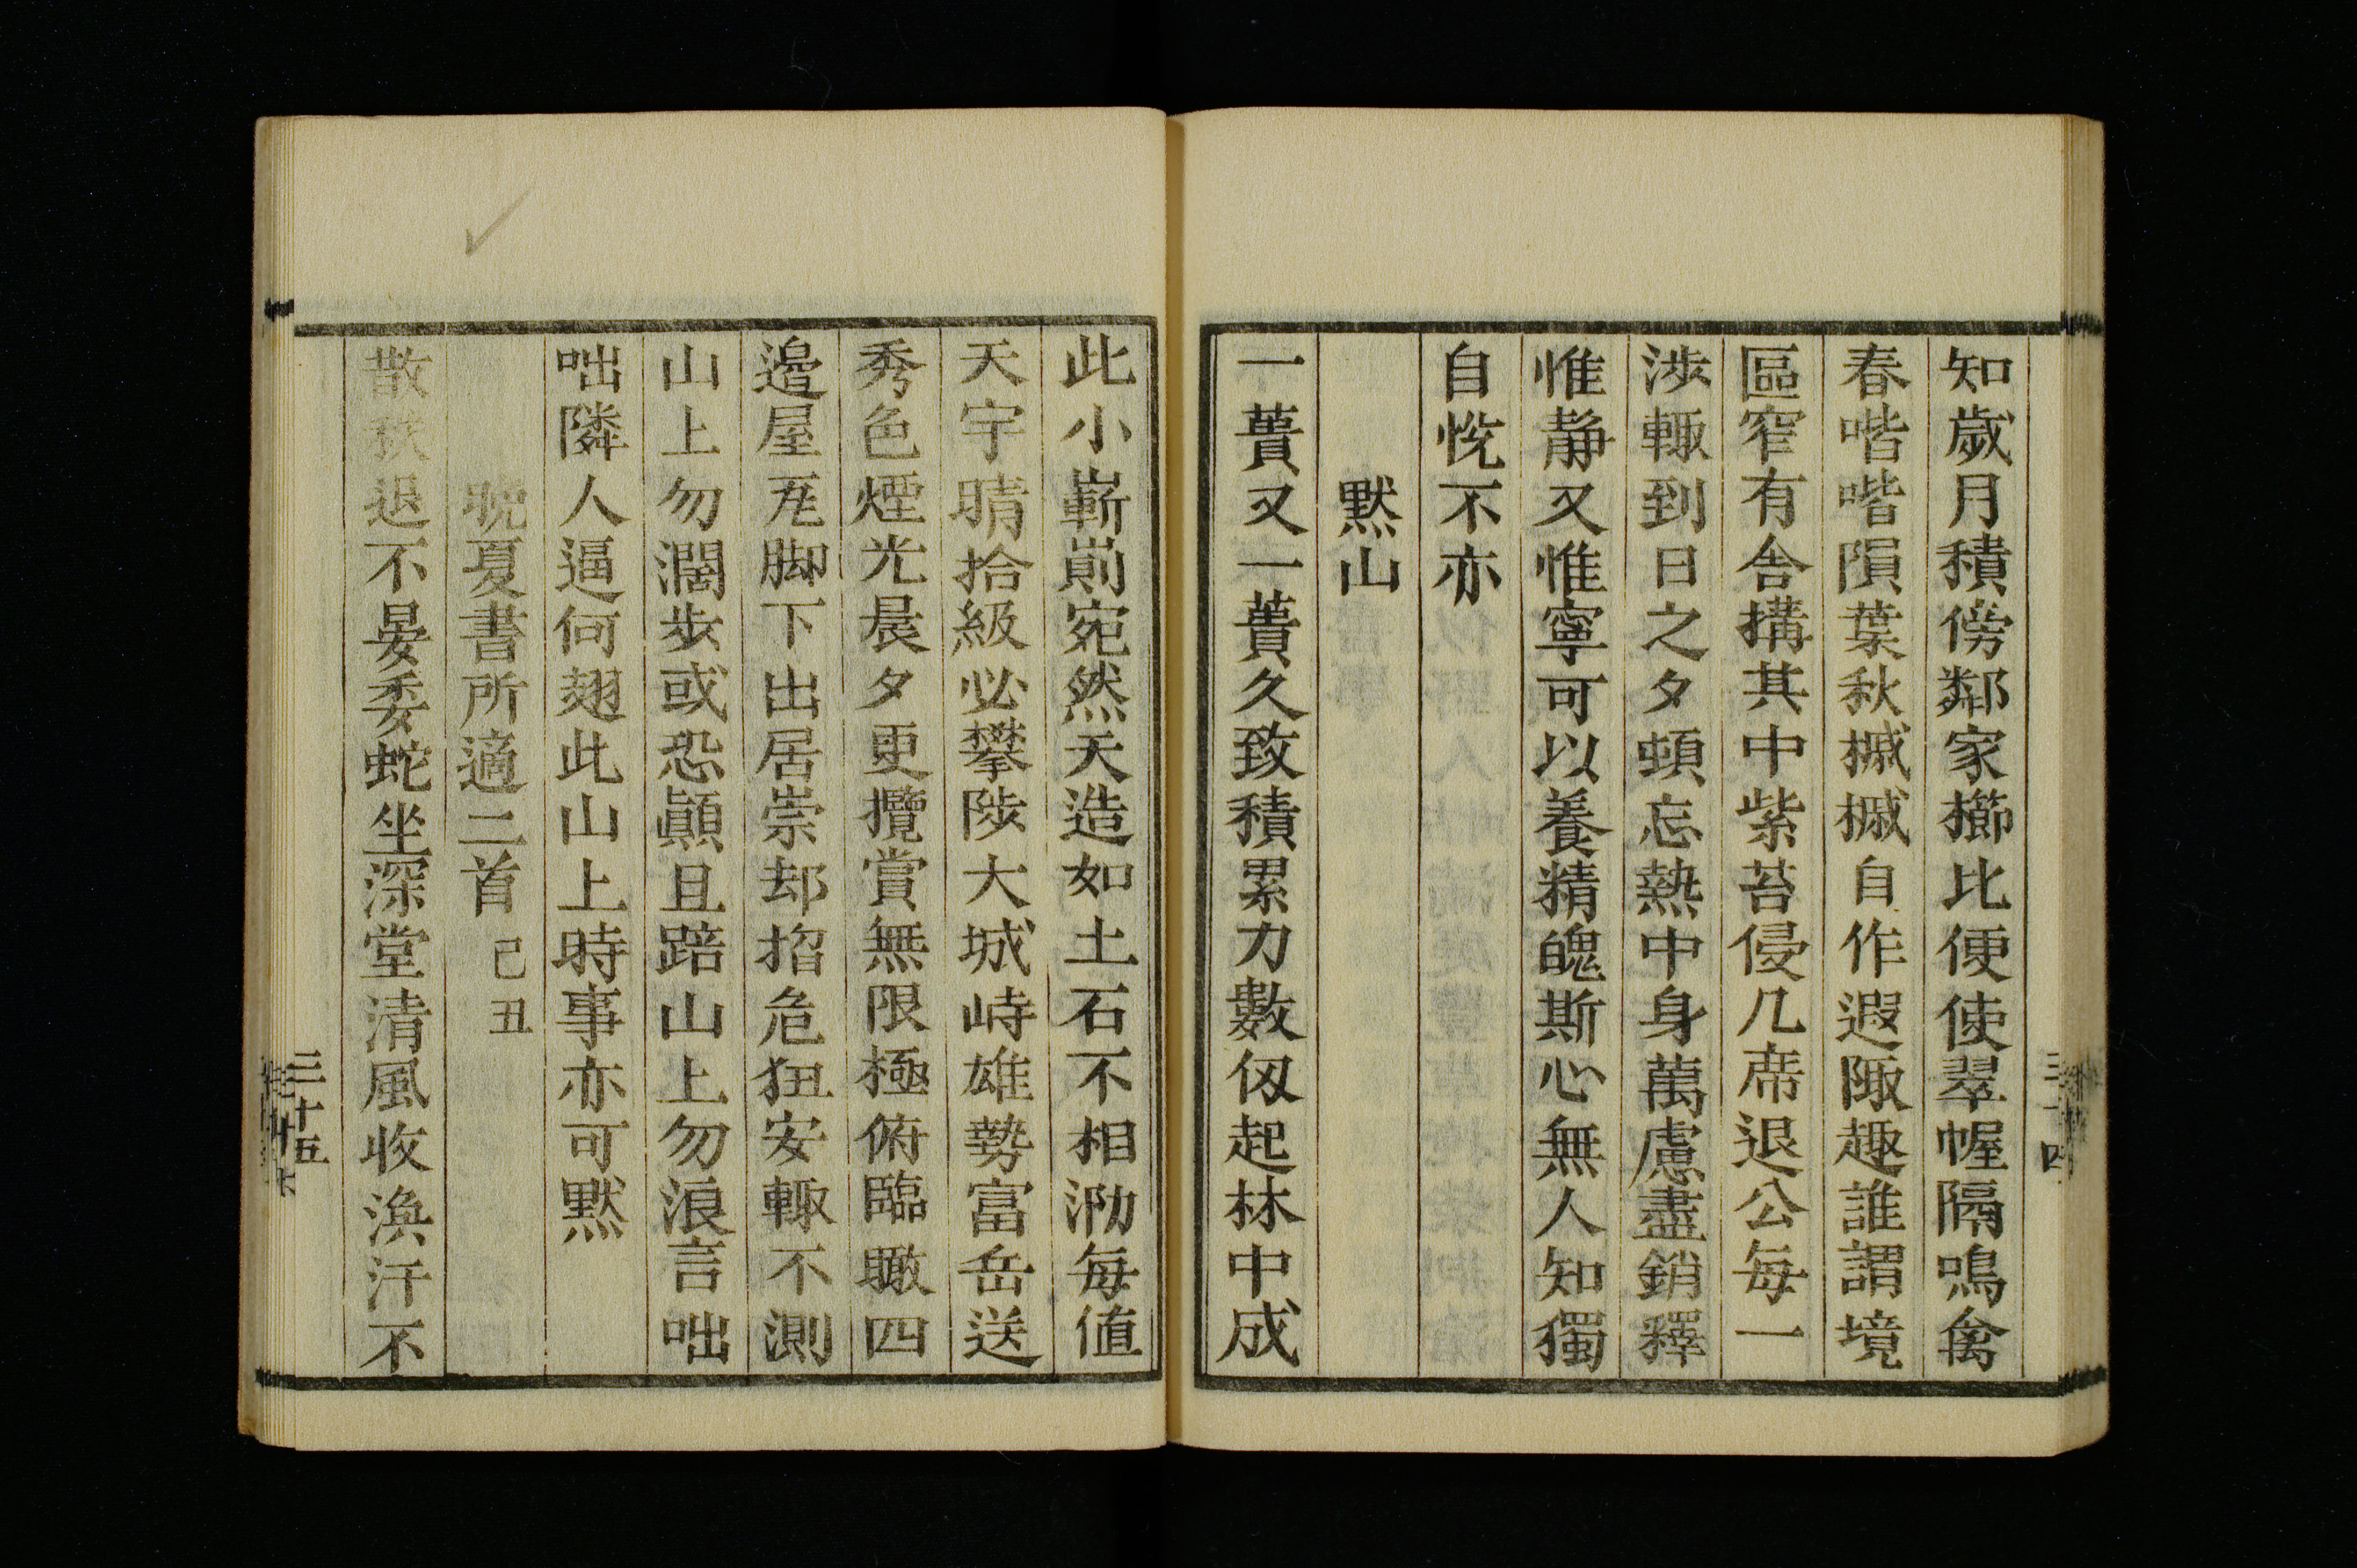 知歲月積傍鄰家櫛比便使翠幄隔鳴禽
春喈喈隕葉秋摵摵自作遐陬趣誰謂境
區窄有舍搆其中紫苔侵几席退公每一
涉輙到日之夕頓忘熱中身萬慮盡銷釋
惟静又惟寧可以養精魄斯心無人知獨
自悅不亦
默山
一蕢又一蕢久致積累力數仭起林中成
三十四
此小嶄崱宛然天造如土石不相泐每值
天宇晴拾級必攀陟大城峙雄勢富岳送
秀色煙光晨夕更攬賞無限極俯臨瞰四
邉屋瓦脚下出居崇却招危狃安輙不測
山上勿濶步或恐顚且踣山上勿浪言咄
咄隣人逼何翅此山上時事亦可默
晚夏書所適二首 己丑
散秩退不晏委蛇坐深堂清風收渙汗不
三十五